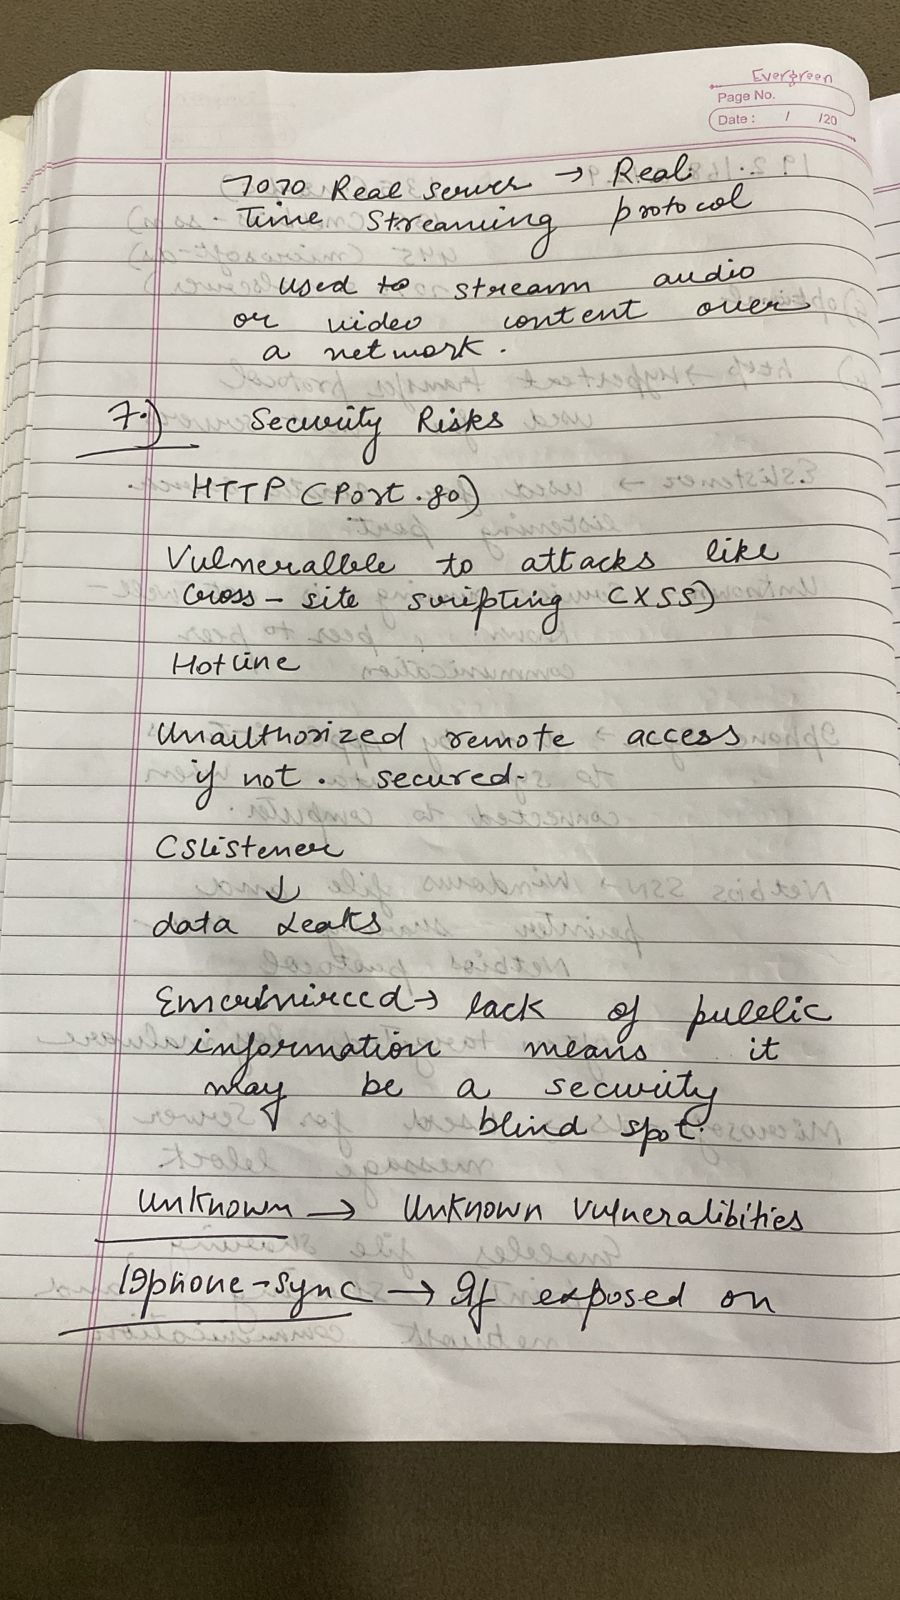 Evergreen
Page No.
Date : / /20
7070 Real server → Real
Time Streaming protocol
used to streamm audio
or video content over
a network.
7.) Security Risks
HTTP (Port.80)
Vulnerallble to attacks like
Cross - site scripting (XSS)
Hotline
Unauthorized remote access
if not . secured-
CSListener
↓
data Leaks
→ lack of public
information means it
may be a security
blind spot.
Unknown → Unknown Vulneralibities
Iphone-sync → If exposed on